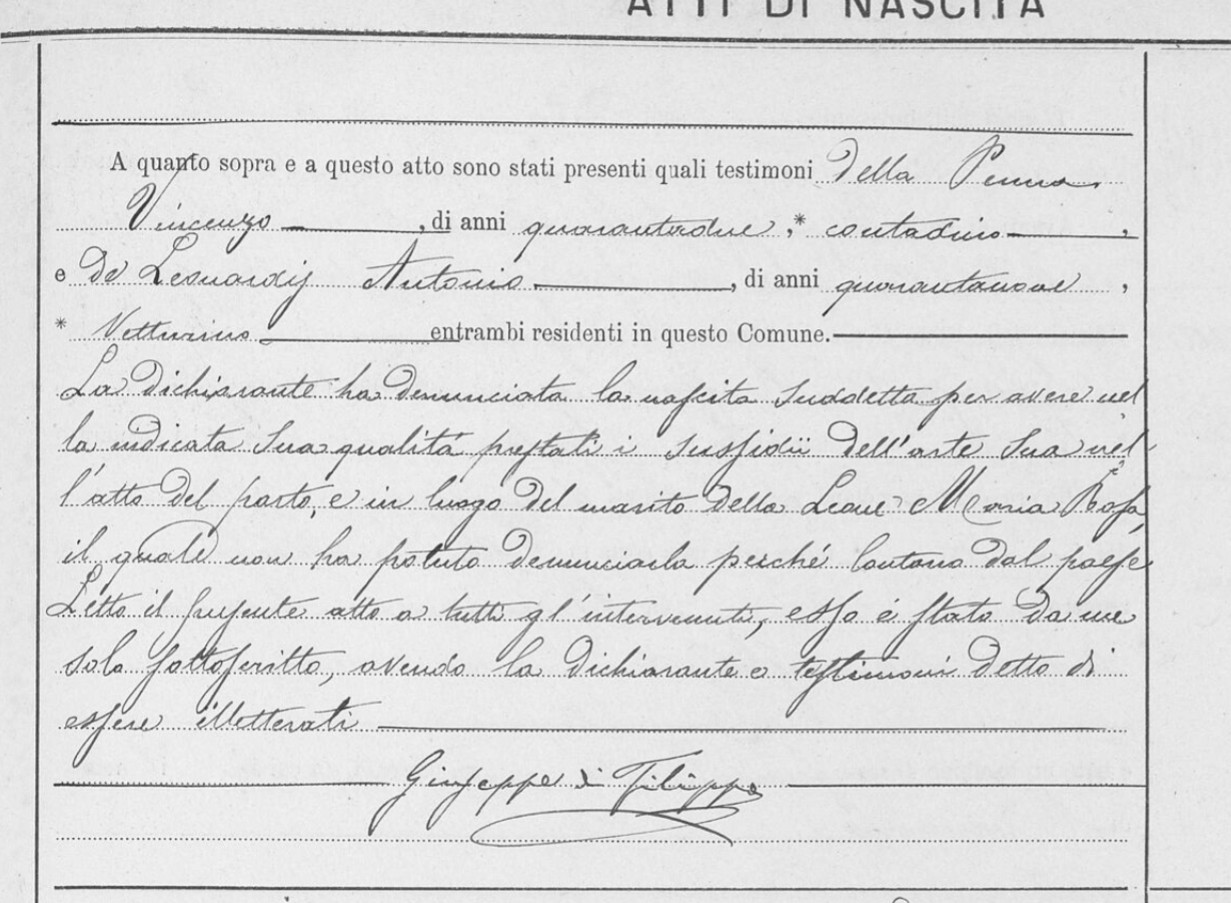 ATTI DI NASCITA
A quanto sopra e a questo atto sono stati presenti quali testimoni Della Penna
Vincenzo, di anni quarantadue, * contadino,
e De Leonardis Antonio, di anni quarantanove,
* Vetturino entrambi residenti in questo Comune.
La dichiarante ha denunciata la nascita suddetta per avere nel
la indicata sua qualità prestati i sussidii dell'arte sua nel
l'atto del parto, e in luogo del marito della Leone Maria Rosa,
il quale non ha potuto denunciarla perché lontano dal paese
Letto il presente atto a tutti gl'intervenuti, esso è stato da me
solo sottoscritto, avendo la dichiarante e testimoni detto di
essere illetterati
Giuseppe di Filippo